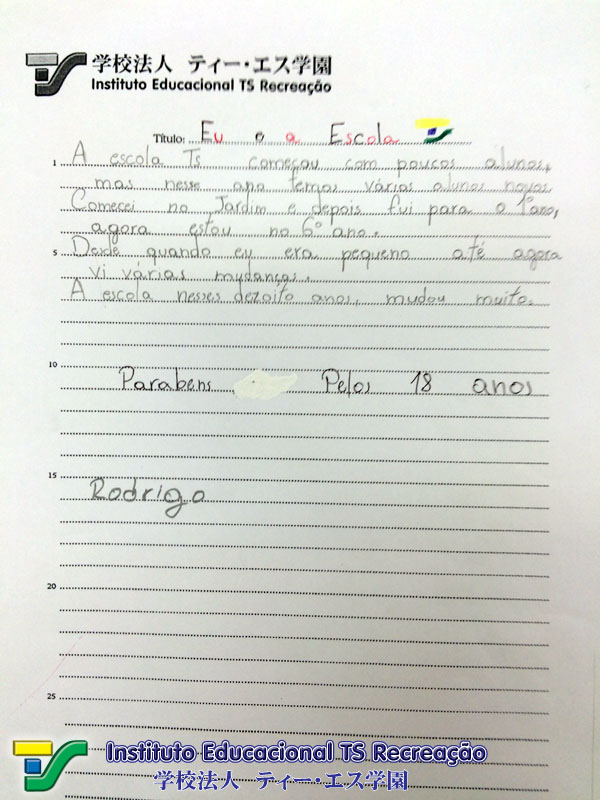 学校法人 ティー・エス学園
Instituto Educacional TS Recreação
Título: Eu e a Escola
1 A escola Ts começou com poucos alunos,
mas nesse ano temos vários alunos novos.
Comecei no Jardim e depois fui para o 1º ano,
agora estou no 6º ano.
5 Desde quando eu era pequeno até agora
vi várias mudanças.
A escola nesses dezoito anos, mudou muito.
10
Parabens Pelos 18 anos
15
Rodrigo
20
25
Instituto Educacional TS Recreação
学校法人 ティー・エス学園